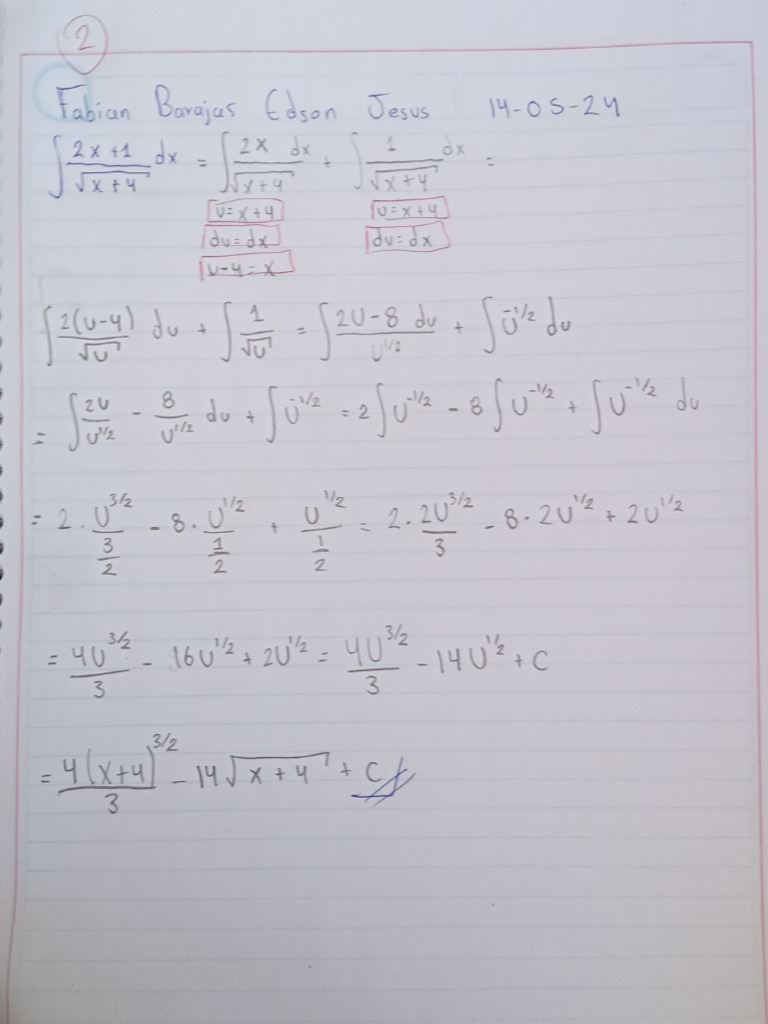 2
Fabian Barajas Edson Jesus 14-05-24
∫ (2x+1)/√(x+4) dx = ∫ 2x dx/√(x+4) + ∫ 1/√(x+4) dx =
u=x+4 u=x+4
du=dx du=dx
u-4=x
∫ 2(u-4)/√u du + ∫ 1/√u = ∫ (2u-8 du)/u^1/2 + ∫ u^-1/2 du
= ∫ 2u/u^1/2 - 8/u^1/2 du + ∫ u^-1/2 = 2∫ u^-1/2 - 8∫ u^-1/2 + ∫ u^-1/2 du
= 2 · u^3/2/(3/2) - 8 · u^1/2/(1/2) + u^1/2/(1/2) = 2 · 2u^3/2/3 - 8 · 2u^1/2 + 2u^1/2
= 4u^3/2/3 - 16u^1/2 + 2u^1/2 = 4u^3/2/3 - 14u^1/2 + C
= 4(x+4)^3/2/3 - 14√(x+4) + C